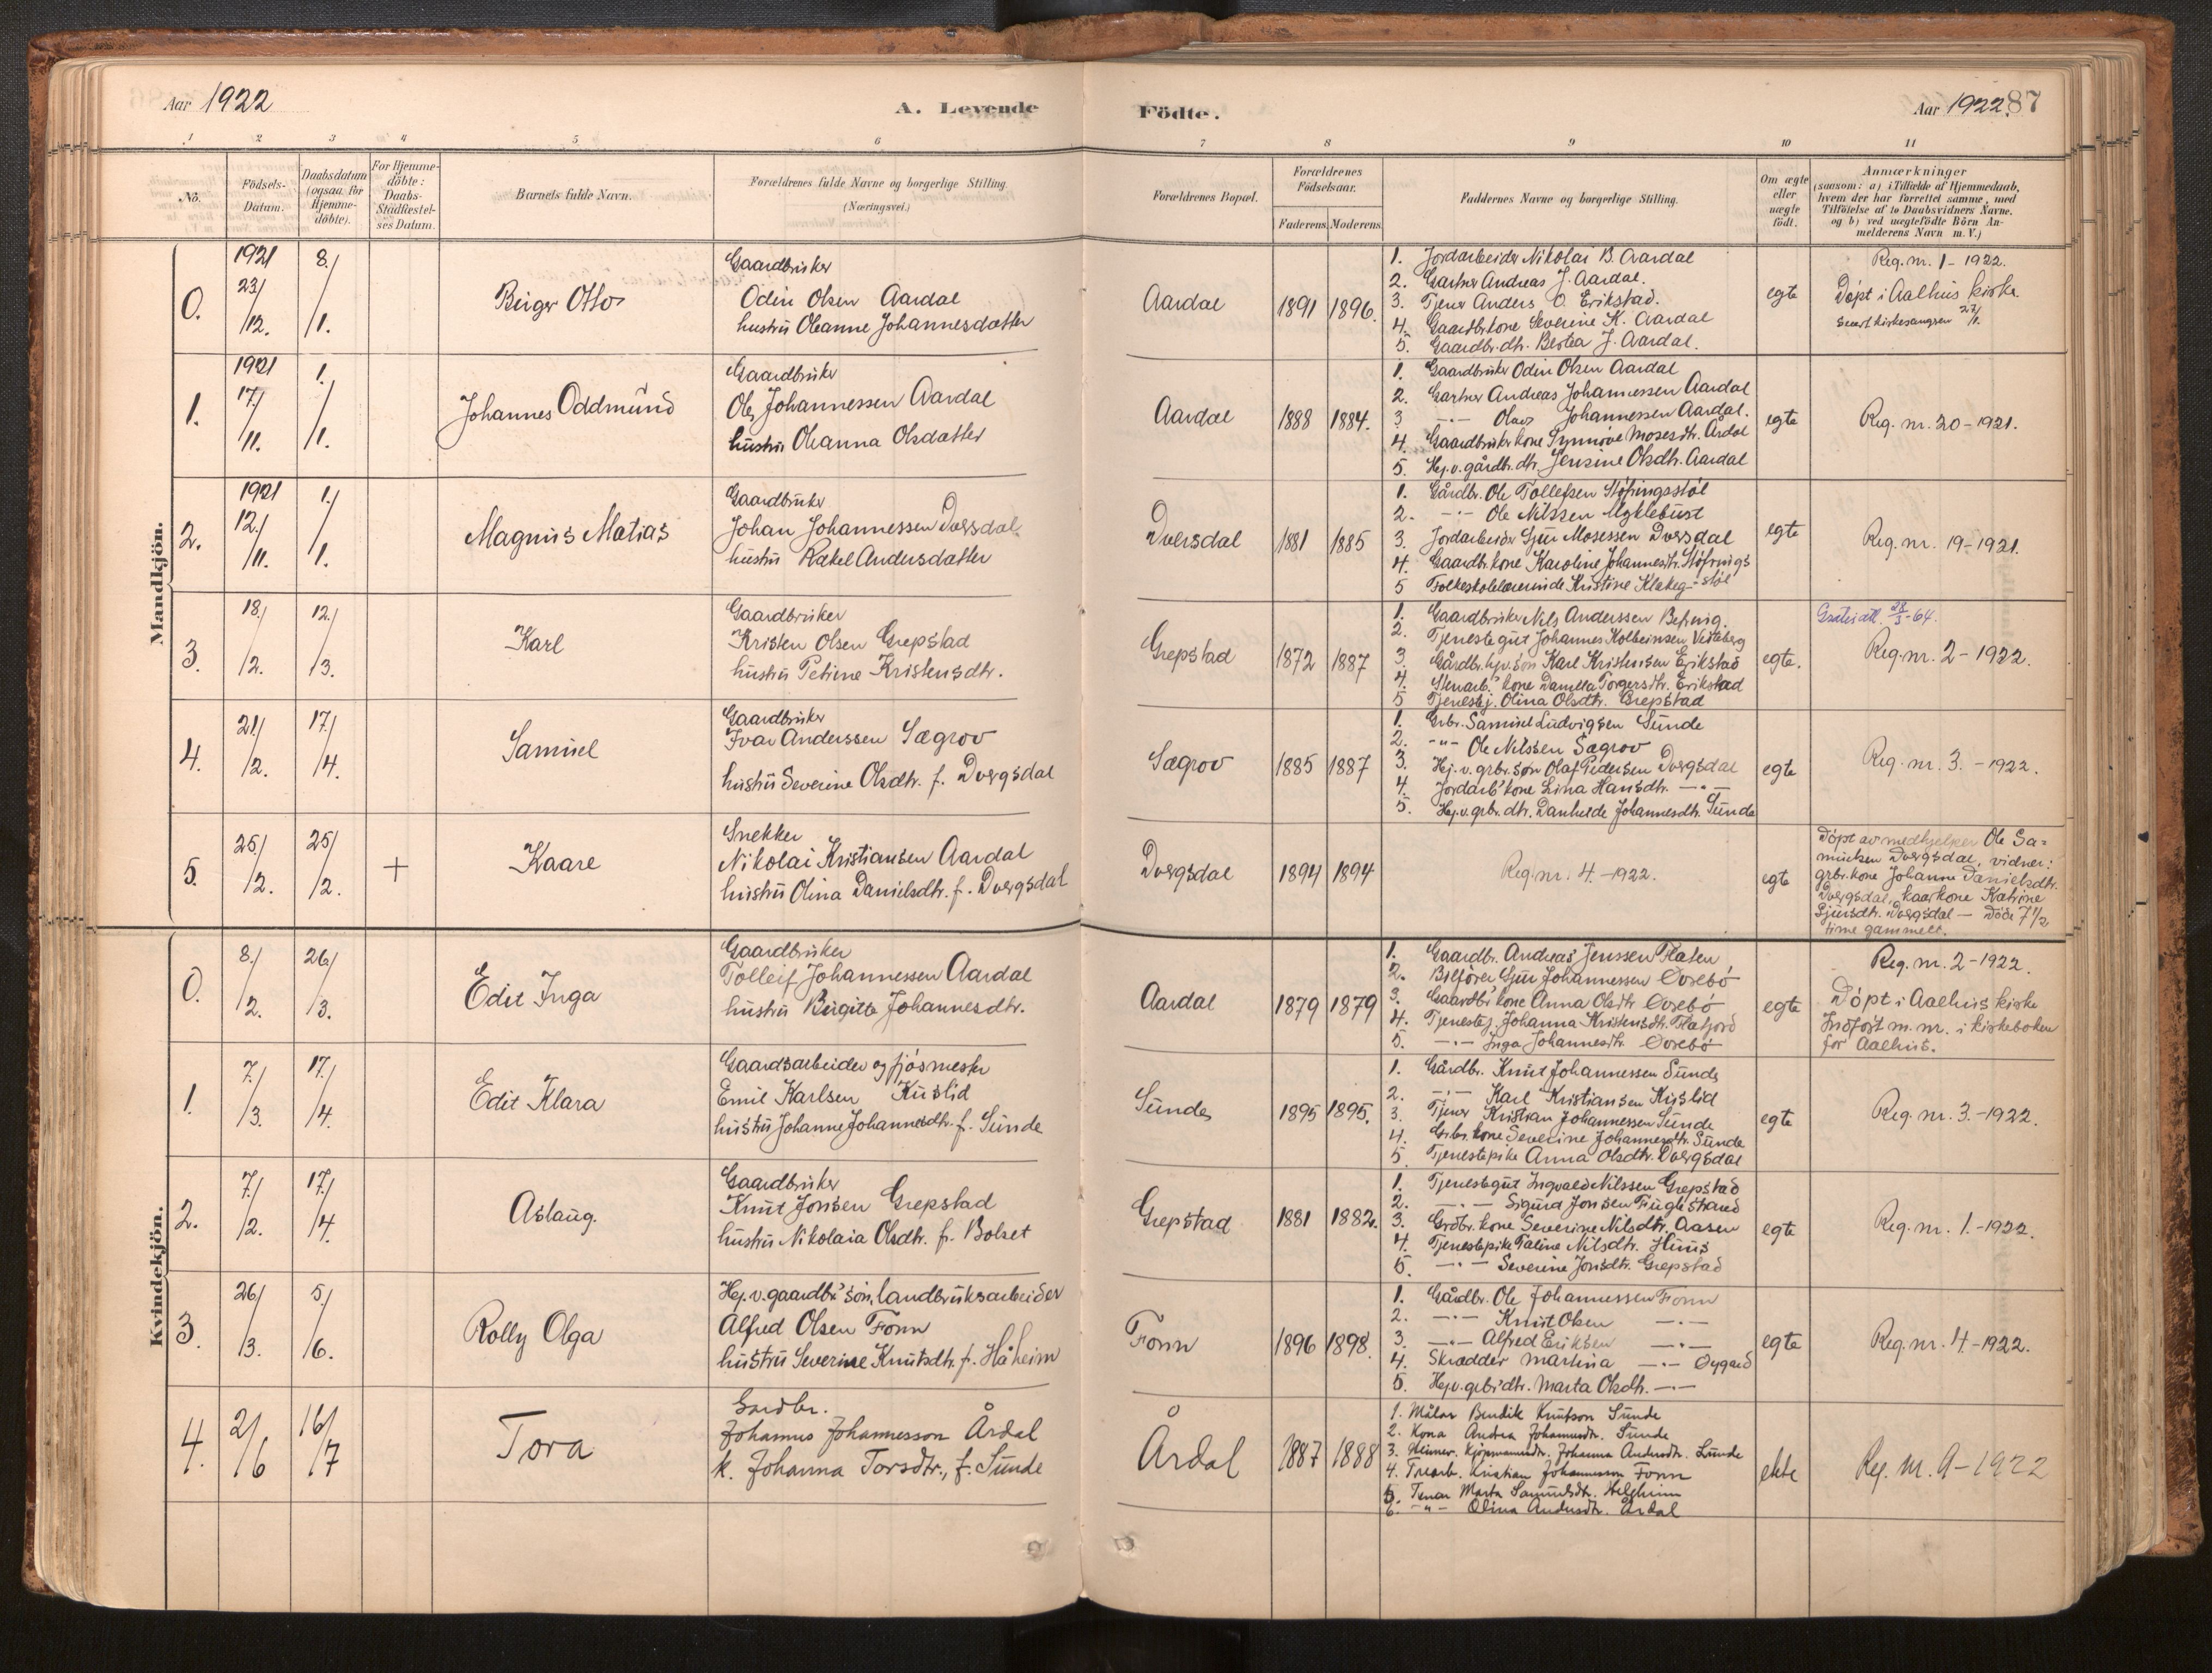 Aar 1922
A. Levende
Födte.
Aar 1922.
87
1 2 3 4 5 6 7 8 9 10 11
No.
Födsels-
Datum.
Daabsdatum
(ogsaa for
Hjemme-
döbte).
For Hjemme-
döbte:
Daabs-
Stadfæstel-
ses Datum.
Barnets fulde Navn.
Forældrenes fulde Navne og borgerlige Stilling.
(Næringsvei.)
Forældrenes Bopæl.
Forældrenes
Födselsaar.
Faderens. Moderens.
Faddernes Navne og borgerlige Stilling.
Om ægte
eller
uægte
födt.
Anmærkninger
(saasom: a) i Tilfælde af Hjemmedaab,
hvem der har forrettet samme, med
Tilföielse af to Daabsvidners Navne,
og b) ved uægtefödte Börn An-
melderens Navn m. V.)
Mandkjön.
0.
1921
23/
/12.
8/
/1.
Birger Otto
Gaardbruker
Odin Olsen Aardal
hustru Oleanne Johannesdatter
Aardal
1891 1896.
1. Jordarbeider Nikolai B. Aardal
2. Gartner Andreas J. Aardal.
3. Tjener Anders O. Erikstad.
4. Gaardbr.kone Severine K. Aardal
5. Gaardbr.dtr. Bertea J. Aardal.
egte
Reg. nr. 1 - 1922.
Döpt i Aalhus kirke
27/1.
1.
1921
17/
/11.
1/
/1.
Johannes Oddmund
Gaardbruker
Ole Johannessen Aardal
hustru Oleanna Olsdatter
Aardal
1888 1884.
1. Gaardbruker Odin Olsen Aardal
2. Gartner Andreas Johannessen Aardal
3 -"- Olav Johannessen Aardal.
4. Gaardbruker kone Synnöve Mosesdtr. Årdal
5. Hj.v. gårdbr. dtr. Jensine Olsdtr. Aardal
egte
Reg. nr. 20 - 1921.
2.
1921
12/
/11.
1/
/1.
Magnus Matias
Gaardbruker
Johan Johannessen Dversdal
hustru Rakel Andersdatter
Dversdal
1881 1885
1. Gårdbr. Ole Tollefsen Stöfringsstöl
2. -"- Ole Nilssen Myklebust
3. Jordarbeider Gjur Mosessen Dversdal
4. Gaardbr. kone Karoline Johannesdtr. Stöfrings
5 Folkeskolelærerinde Kristine Klakeg -stöl
egte
Reg. nr. 19 - 1921.
3.
18/
/2.
12/
/3.
Karl
Gaardbruker
Kristen Olsen Grepstad
hustru Petrine Kristensdtr.
Grepstad
1872 1887
1. Gaardbruker Nils Anderssen Befring.
2. Tjenestegut Johannes Kolbeinsen Viteberg
3. Gårdbr. hjv. sön Karl Kristensen Erikstad
4. Stenarb.' kone Daniella Torgersdtr. Erikstad
5 Tjenestej. Olina Olsdtr. Grepstad
egte.
28/3-64.
Reg. nr. 2 - 1922.
4.
21/
/2.
17/
/4.
Samuel
Gaardbruker
Ivar Anderssen Sægrov
hustru Severine Olsdtr. f. Dvergsdal
Sægrov
1885 1887
1. Grbr. Samuel Ludvigsen Sunde
2. -"- Ole Nilssen Sægrov
3. Hj. v. grbr. søn Olaf Pedersen Dvergsdal
4. Jordarb.' kone Lina Hansdtr. -"-
5. Hj. v. grbr. dtr. Danheide Johannesdtr. Sunde
egte
Reg. nr. 3. - 1922.
5.
25/
/2.
25/
/2.
+
Kaare
Snekker
Nikolai Kristiansen Aardal
hustru Olina Danielsdtr. f. Dvergsdal
Dvergsdal
1894 1894
Reg. nr. 4. - 1922.
egte
Döpt av medhjelper Ole Sa=
muelsen Dvergsdal, vidner:
grbr. kone Johanne Danielsdtr.
Dvergsdal, kaarkone Katrine
Gjursdtr. Dvergsdal - Död 7 1/2
time gammelt.
Kvindekjön.
0.
8/
/2.
26/
/3.
Edit Inga
Gaardbruker
Tolleif Johannessen Aardal
hustru Birgitte Johannesdtr.
Aardal
1879 1879
1. Gaardbr. Andreas Jenssen Flaten
2. Bilförer Gjur Johannessen Övrebö
3. Gaardbr.' kone Anna Olsdtr. Övrebö
4. Tjenestej. Johanna Kristensdtr. Flatjord
5. -"- Inga Johannesdtr. Övrebö
egte
Reg. nr. 2 - 1922.
Döpt i Aalhus kirke
Indfört m. nr. i kirkeboken
for Aalhus.
1.
7/
/3.
17/
/4.
Edit Klara
Gaardsarbeider og fjösmester
Emil Karlsen Kuslid
hustru Johanne Johannesdtr. f. Sunde
Sunde
1895 1895.
1. Gårdbr. Knut Johannessen Sunde
2. -"- Karl Kristiansen Kuslid
3. Tjener Kristian Johannessen Sunde
4. Grbr. kone Severine Johannesdtr. Sunde
5. Tjenestepike Anna Olsdtr. Dvergsdal
egte
Reg. nr. 3. - 1922.
2.
7/
/2.
17/
/4.
Aslaug.
Gaardbruker
Knut Jonsen Grepstad
hustru Nikolaia Olsdtr. f. Bolset
Grepstad
1881 1882.
1. Tjenestegut Ingvald Nilssen Grepstad
2. -"- Sigurd Jonsen Fuglestrand
3. Grdbr. kone Severine Nilsdtr. Aasen
4. Tjenestepike Paline Nilsdtr. Huus
5. -"- Severine Jonsdtr. Grepstad
egte
Reg. nr. 1. - 1922.
3.
26/
/3.
5/
/6.
Rolly Olga
Hj. v. gaardbr.' sön, landbruksarbeider
Alfred Olsen Fonn
hustru Severine Knutsdtr. f. Håheim
Fonn
1896 1898.
1. Gårdbr. Ole Johannessen Fonn
2. -"- Knut Olsen -"-
3. -"- Alfred Eriksen -"-
4. Skrædder Martina -"- Öygard
5. Hj.v. grbr' dtr. Marta Olsdtr. -"-
egte
Reg. nr. 4. - 1922.
4.
2/
/6
16/
/7
Tora
Gardbr.
Johannes Johannesson Årdal
k. Johanna Torsdtr., f. Sunde
Årdal
1887 1888
1. Målar Bendik Knutson Sunde
2. Kona Andrea Johannesdtr. Sunde
3. Heimev. kjöpmannsdtr. Johanna Andersdtr. Sunde
4. Trearb. Kristian Johannesson Fonn
5. Tenar Marta Samuelsdtr. Helgheim
6. -"- Olina Andersdtr. Årdal
ekte
Reg. nr. 9 - 1922